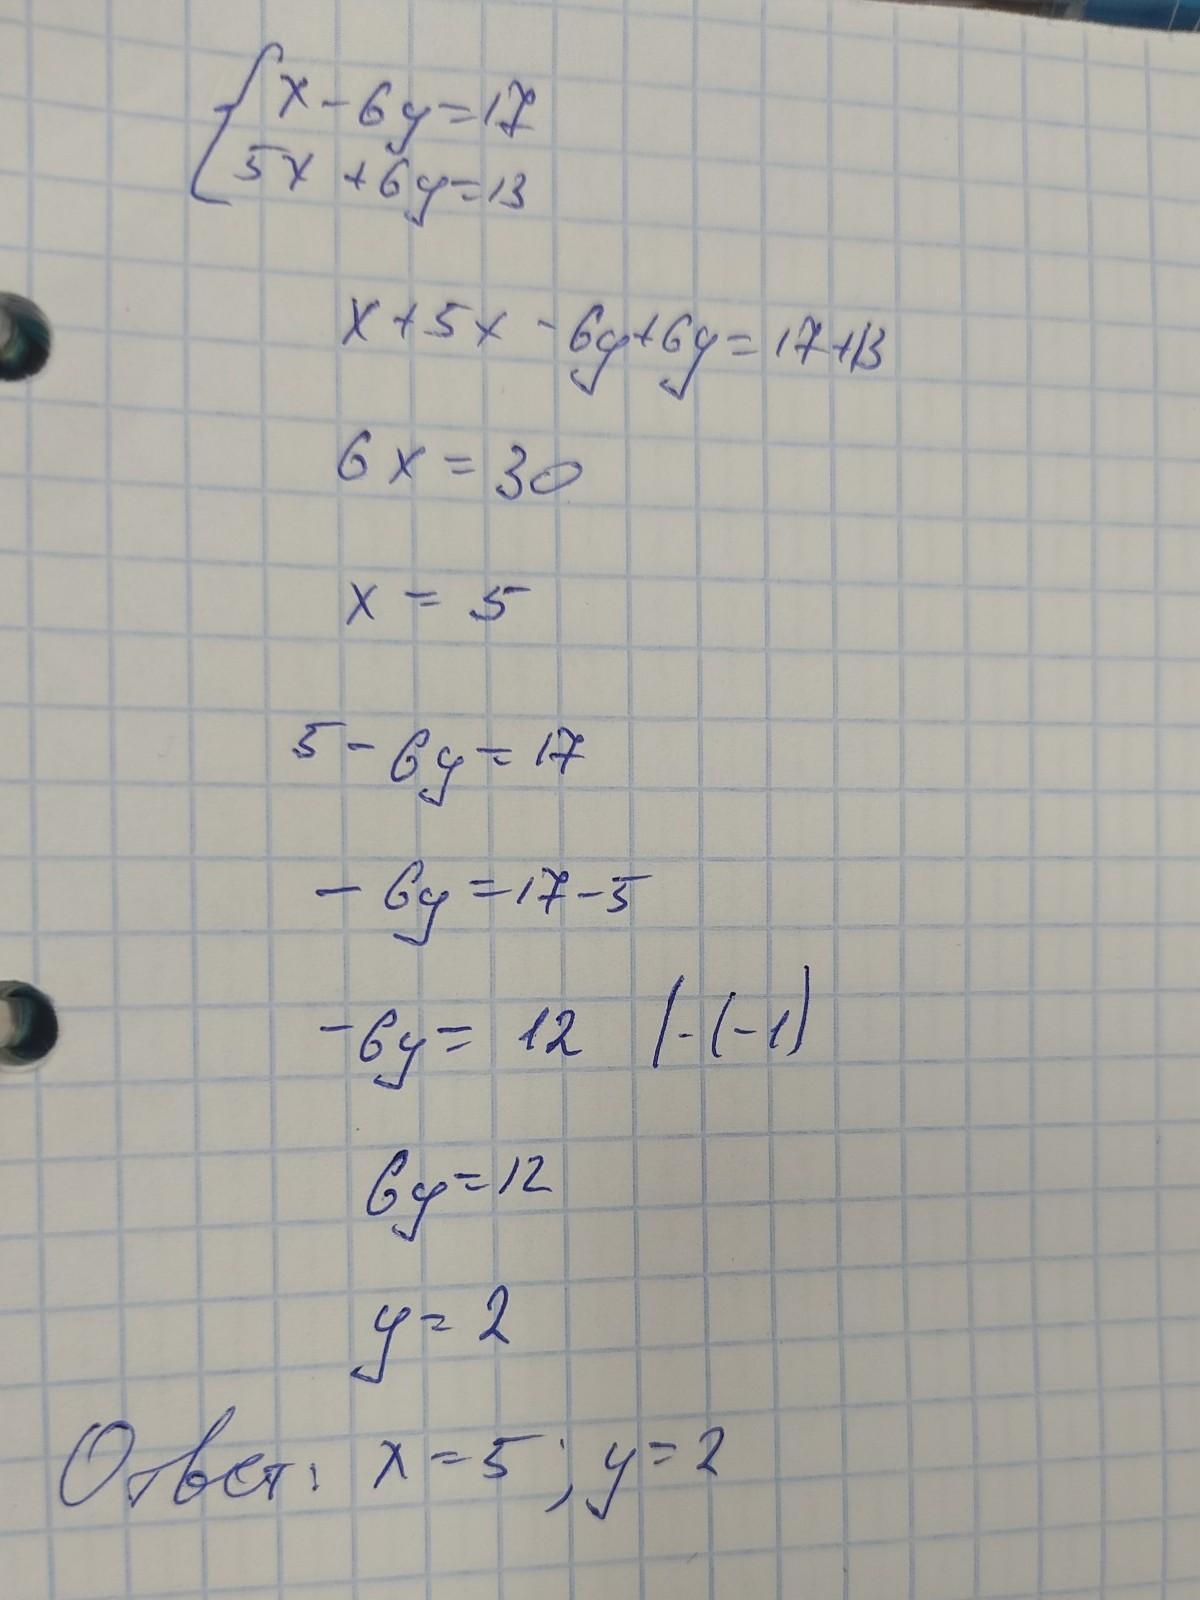 x - 6y = 17
5x + 6y = 13
x + 5x - 6y + 6y = 17 + 13
6x = 30
x = 5
5 - 6y = 17
- 6y = 17 - 5
- 6y = 12 | - (-1)
6y = 12
y = 2
Ответ: x = 5; y = 2